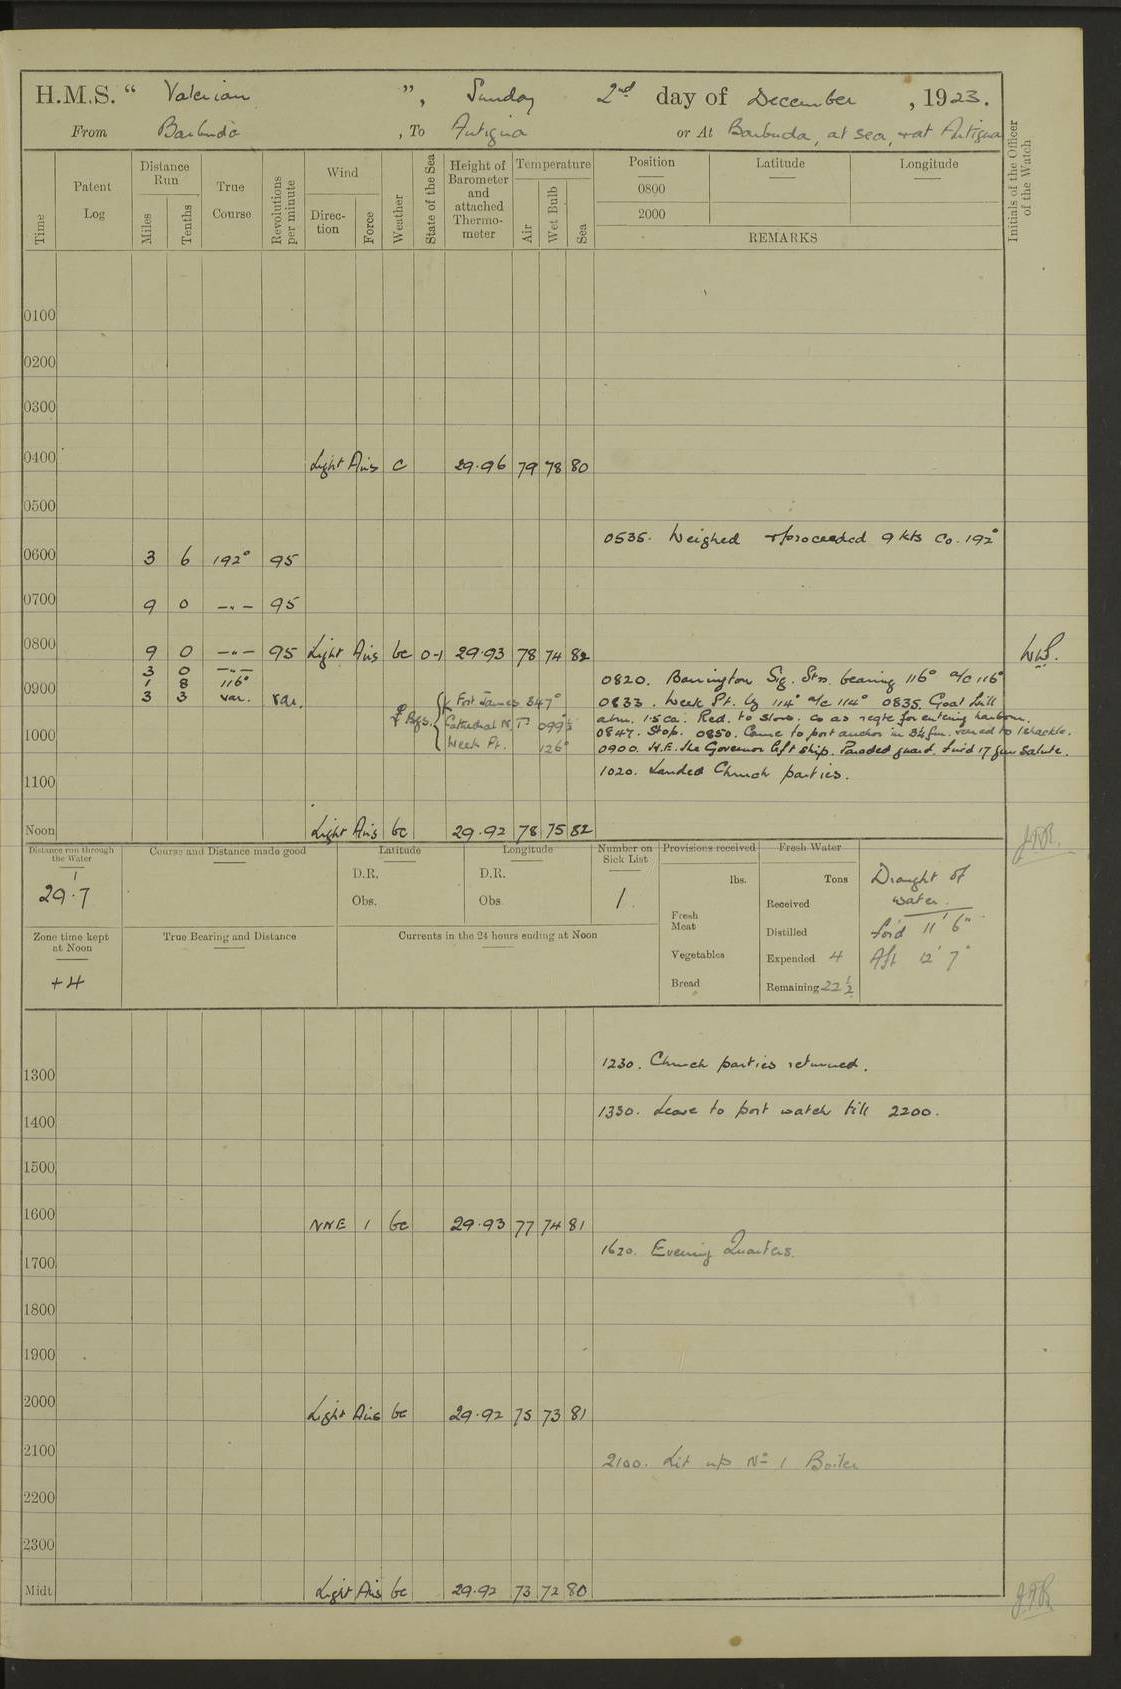 H.M.S. “ Valerian ”, Sunday 2nd day of December , 1923.
From Barbuda , To Antigua or At Barbuda, at sea, + at Antigua
Time
Patent Log
Distance Run
Miles
Tenths
True Course
Revolutions per minute
Wind
Direc-tion
Force
Weather
State of the Sea
Height of Barometer and attached Thermo-meter
Temperature
Air
Wet Bulb
Sea
Position
0800
2000
Latitude
Longitude
REMARKS
Initials of the Officer of the Watch
0100
0200
0300
0400 Light Airs c 29.96 79 78 80
0500
0535. Weighed + proceeded 9 kts Co. 192°
0600 3 6 192° 95
0700 9 0 –"– 95
0800 9 0 –"– 95 Light Airs bc 0-1 29.93 78 74 82
3 0 –"–
0820. Barrington Sig. Stn. bearing 116° a/c 116°
0900 1 8 116°
3 3 var. var.
Bgs. Fort James 347°
0833. Week Pt. by 114° a/c 114° 0835. Goat hill
abm. 1.5 ca. Red. to slow. Co as reqte for entering harbour.
Cathedral N. Tr 099½°
0847. Stop. 0850. Came to port anchor in 3¼ fm. veered to 1 shackle.
1000
Week Pt. 126°
0900. H.E. the Governor left ship. Paraded guard. fired 17 gun salute.
1020. Landed Church parties.
1100
Noon Light Airs bc 29.92 78 75 82
Distance run through the Water
29.7
Course and Distance made good
Latitude
D.R.
Obs.
Longitude
D.R.
Obs
Number on Sick List
1.
Provisions received
lbs.
Fresh Meat
Vegetables
Bread
Fresh Water
Tons
Received
Distilled
Expended 4
Remaining 22½
Draught of
water.
for'd 11' 6"
Aft 12' 7"
Zone time kept at Noon
+4
True Bearing and Distance
Currents in the 24 hours ending at Noon
1230. Church parties returned.
1300
1330. Leave to port watch till 2200.
1400
1500
1600 NNE 1 bc 29.93 77 74 81
1620. Evening Quarters.
1700
1800
1900
2000 Light Airs bc 29.92 75 73 81
2100
2100. Lit up No 1 Boiler
2200
2300
Midt Light Airs bc 29.92 73 72 80